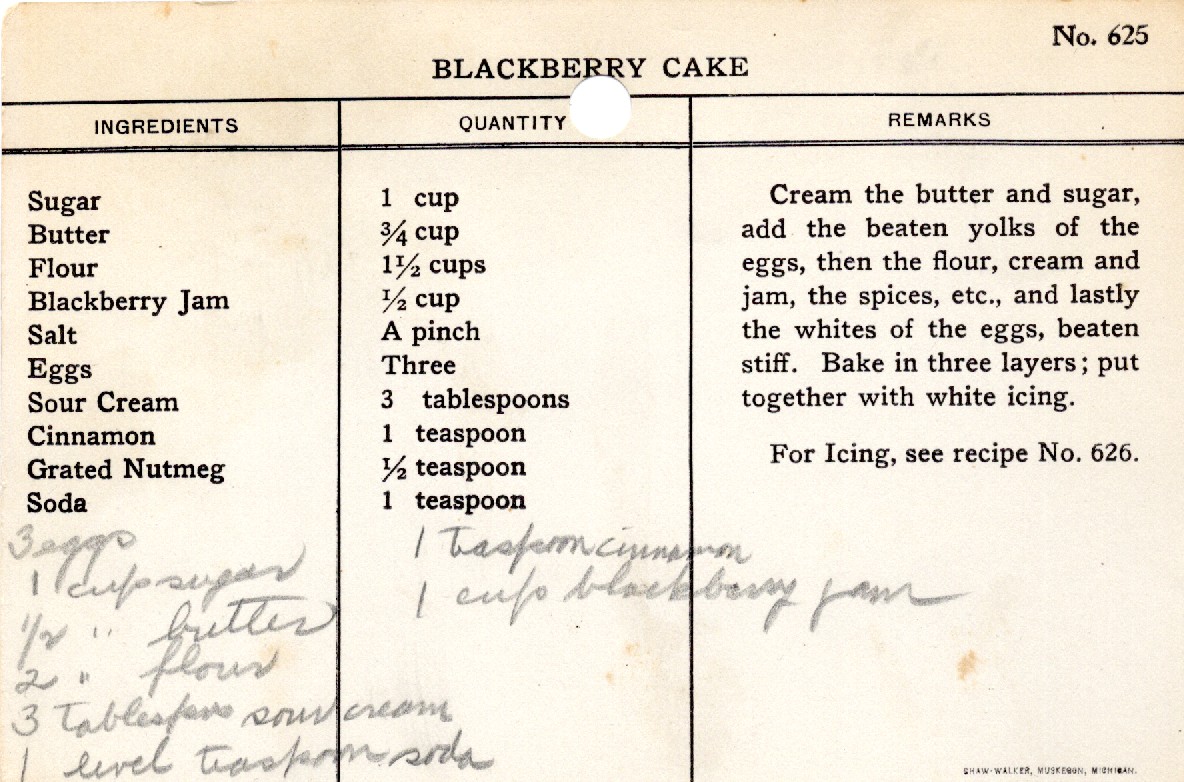 No. 625
BLACKBERRY CAKE
INGREDIENTS QUANTITY REMARKS
Sugar 1 cup
Butter ¾ cup
Flour 1½ cups
Blackberry Jam ½ cup
Salt A pinch
Eggs Three
Sour Cream 3 tablespoons
Cinnamon 1 teaspoon
Grated Nutmeg ½ teaspoon
Soda 1 teaspoon
Cream the butter and sugar,
add the beaten yolks of the
eggs, then the flour, cream and
jam, the spices, etc., and lastly
the whites of the eggs, beaten
stiff. Bake in three layers; put
together with white icing.
For Icing, see recipe No. 626.
3 eggs
1 cup sugar
1/2 " butter
2 " flour
3 tablespons sour cream
1 level teaspoon soda
1 teaspoon cinnamon
1 cup blackberry jam
SHAW-WALKER, MUSKEGON, MICHIGAN.